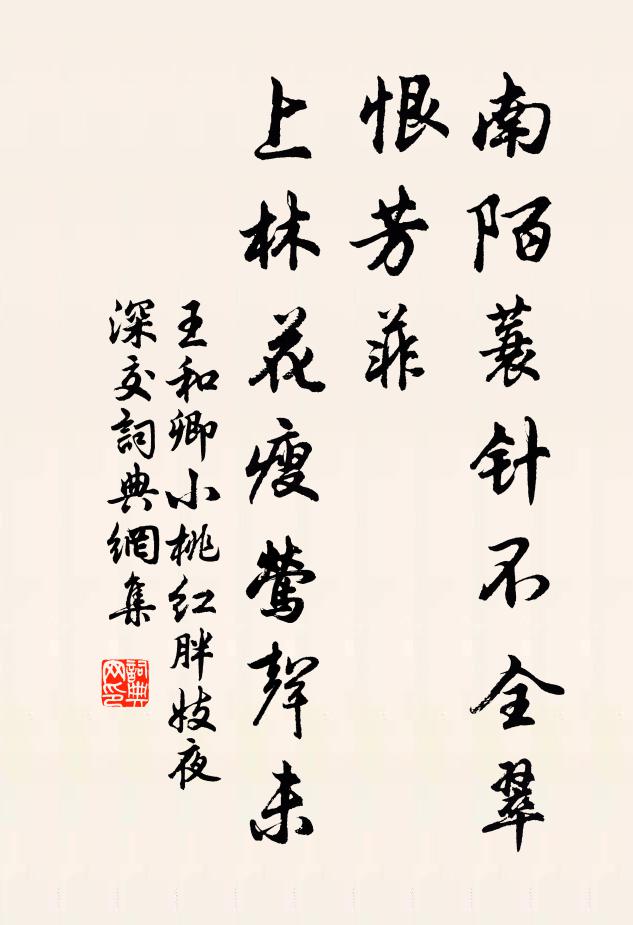 南陌蓑针不全翠
恨芳菲
上林花瘦鶯聲未
王和卿小桃红胖妓夜
深交詞典網集
詞典
网印